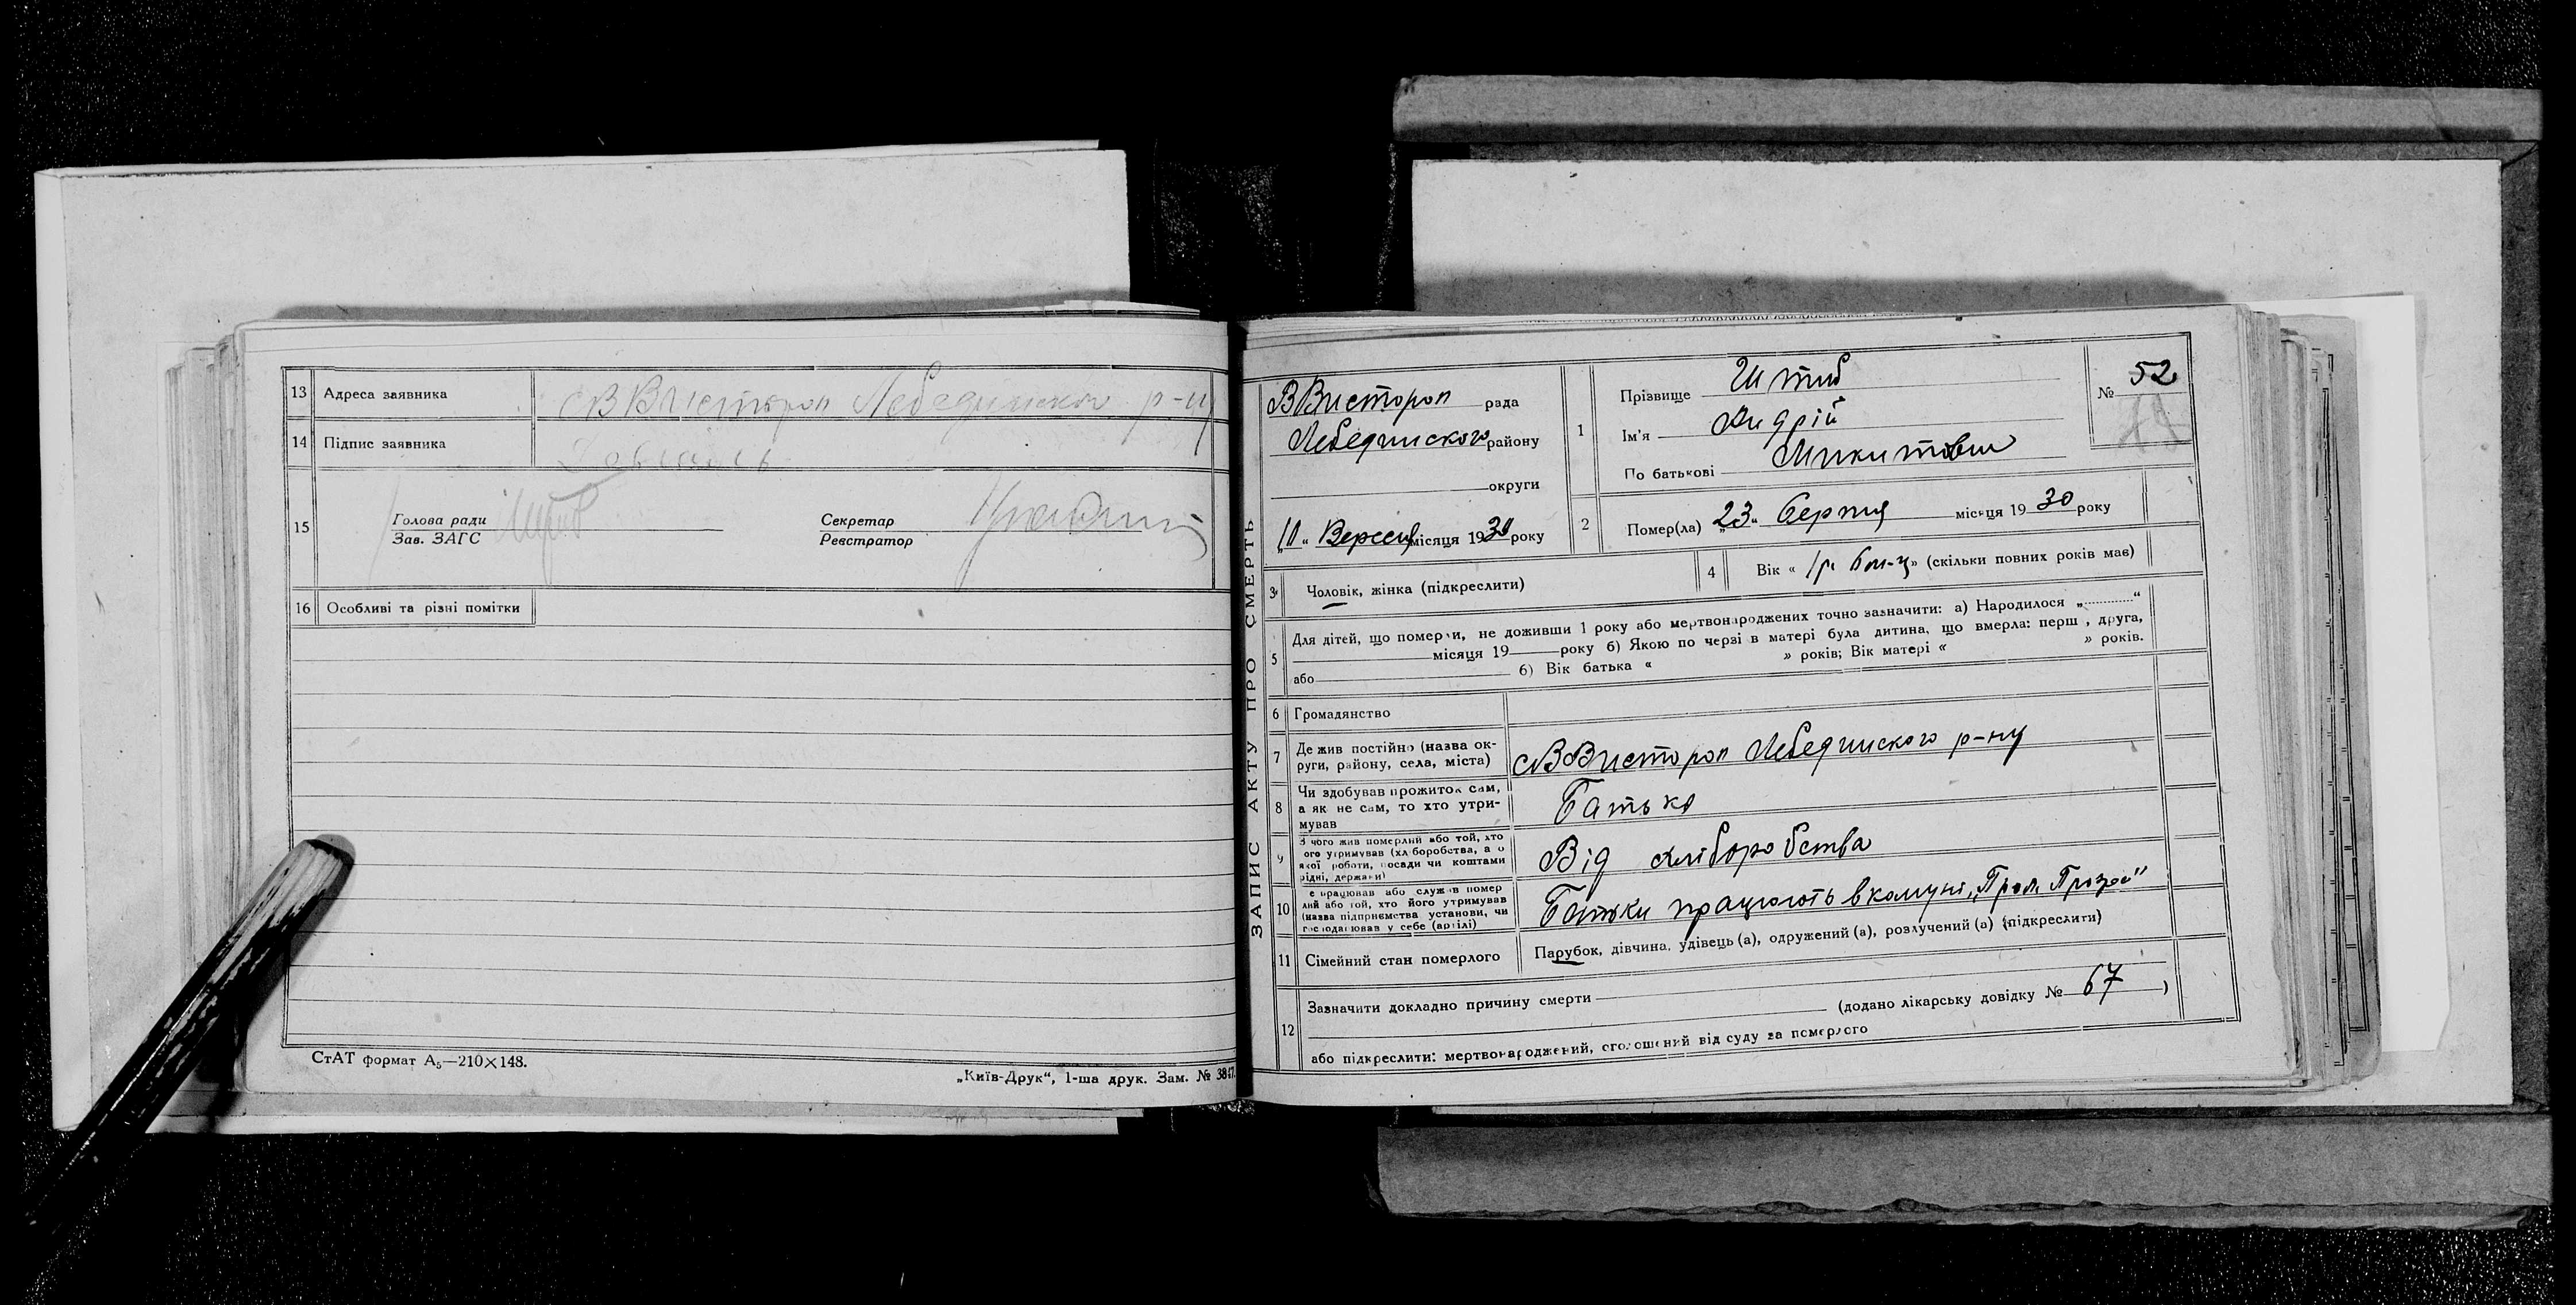 13 Адреса заявника С В Вистороп Лебединского р-н
14 Підпис заявника
15 Голова ради
Зав. ЗАГС
Секретар
Реєстратор
16 Особливі та різні помітки
СтАТ формат А₅—210×148.
„Київ-Друк“, 1-ша друк. Зам. № 3847.
ЗАПИС АКТУ ПРО СМЕРТЬ
В Вистороп рада
Лебединского району
округи
„10“ Вересня місяця 1930 року
1 Прізвище Штиб
Ім'я Андрій
По батькові Микитович
№ 52
2 Помер(ла) „23“ Серпня місяця 1930 року
3 Чоловік, жінка (підкреслити)
4 Вік « 1 р. » (скільки повних років має)
5 Для дітей, що померли, не доживши 1 року або мертвонароджених точно зазначити: а) Народилося „............“
місяця 19 року б) Якою по черзі в матері була дитина, що вмерла: перш , друга,
або б) Вік батька « » років; Вік матері « » років.
6 Громадянство
7 Де жив постійно (назва округи, району, села, міста) С В Вистороп Лебединского р-ну
8 Чи здобував прожиток сам, а як не сам, то хто утримував Батько
9 З чого жив померлий або той, хто ого утримував (хліборобства, а о якої роботи, посади чи коштами рідні, держави) Від хліборобства
10 е працював або служив помер лий або той, хто його утримував (назва підприємства установи, чи господарював у себе (артілі) Батьки працюють в комуні „
11 Сімейний стан померлого Парубок, дівчина, удівець (а), одружений (а), розлучений (а) (підкреслити)
12 Зазначити докладно причину смерти
(додано лікарську довідку № 67 )
або підкреслити: мертвонароджений, оголошений від суду за померлого